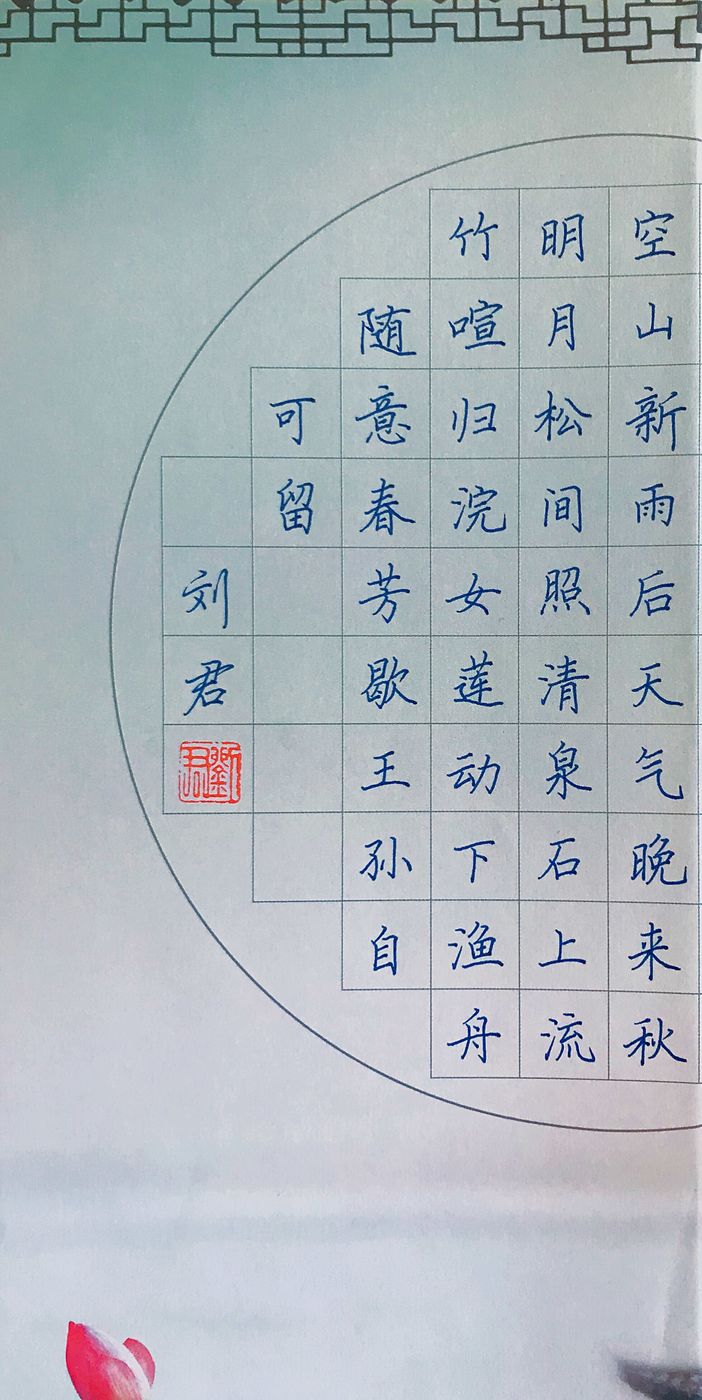 空山新雨后天气晚来秋
明月松间照清泉石上流
竹喧归浣女莲动下渔舟
随意春芳歇王孙自
可留
刘君
劉君